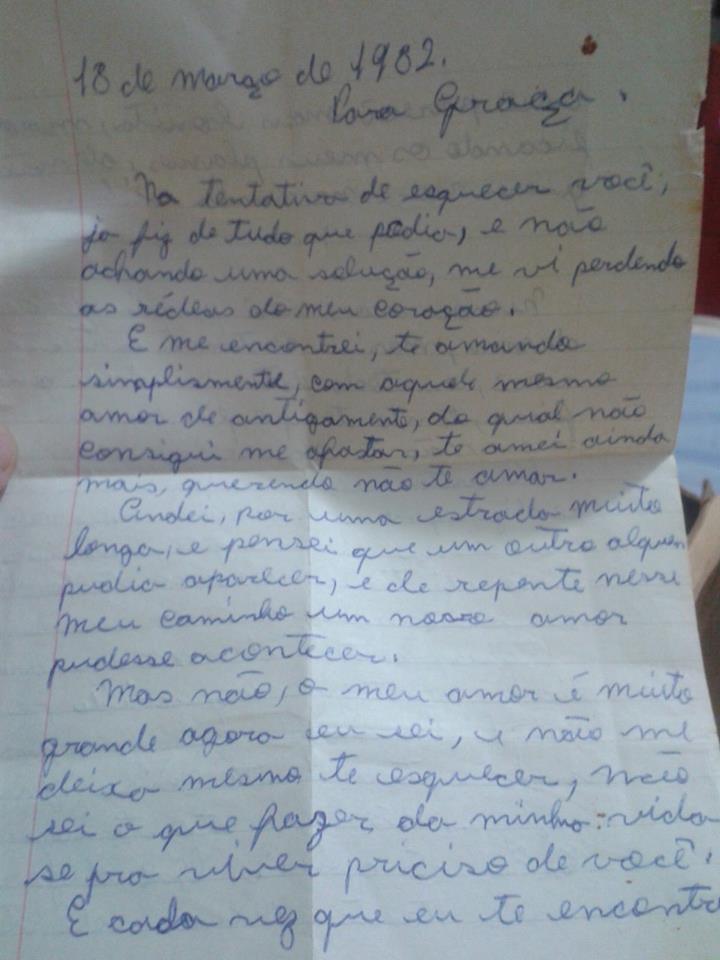 18 de março de 1982.
Para Graça.
Na tentativa de esquecer você,
ja fiz de tudo que podia, e não
achando uma solução, me vi perdendo
as rédeas do meu coração.
E me encontrei, te amando
simplismente, com aquele mesmo
amor de antigamente, do qual não
consigui me afastar, te amei ainda
mais, querendo não te amar.
Andei, por uma estrada muito
longa, e pensei que um outro alguen
pudia aparecer, e de repente nesse
meu caminho um novo amor
pudesse acontecer.
Mas não, o meu amor é muito
grande agora eu sei, e não me
deixa mesmo te esquecer, não
sei o que fazer da minha vida
se pra viver priciso de você.
E cada vez que eu te encontro